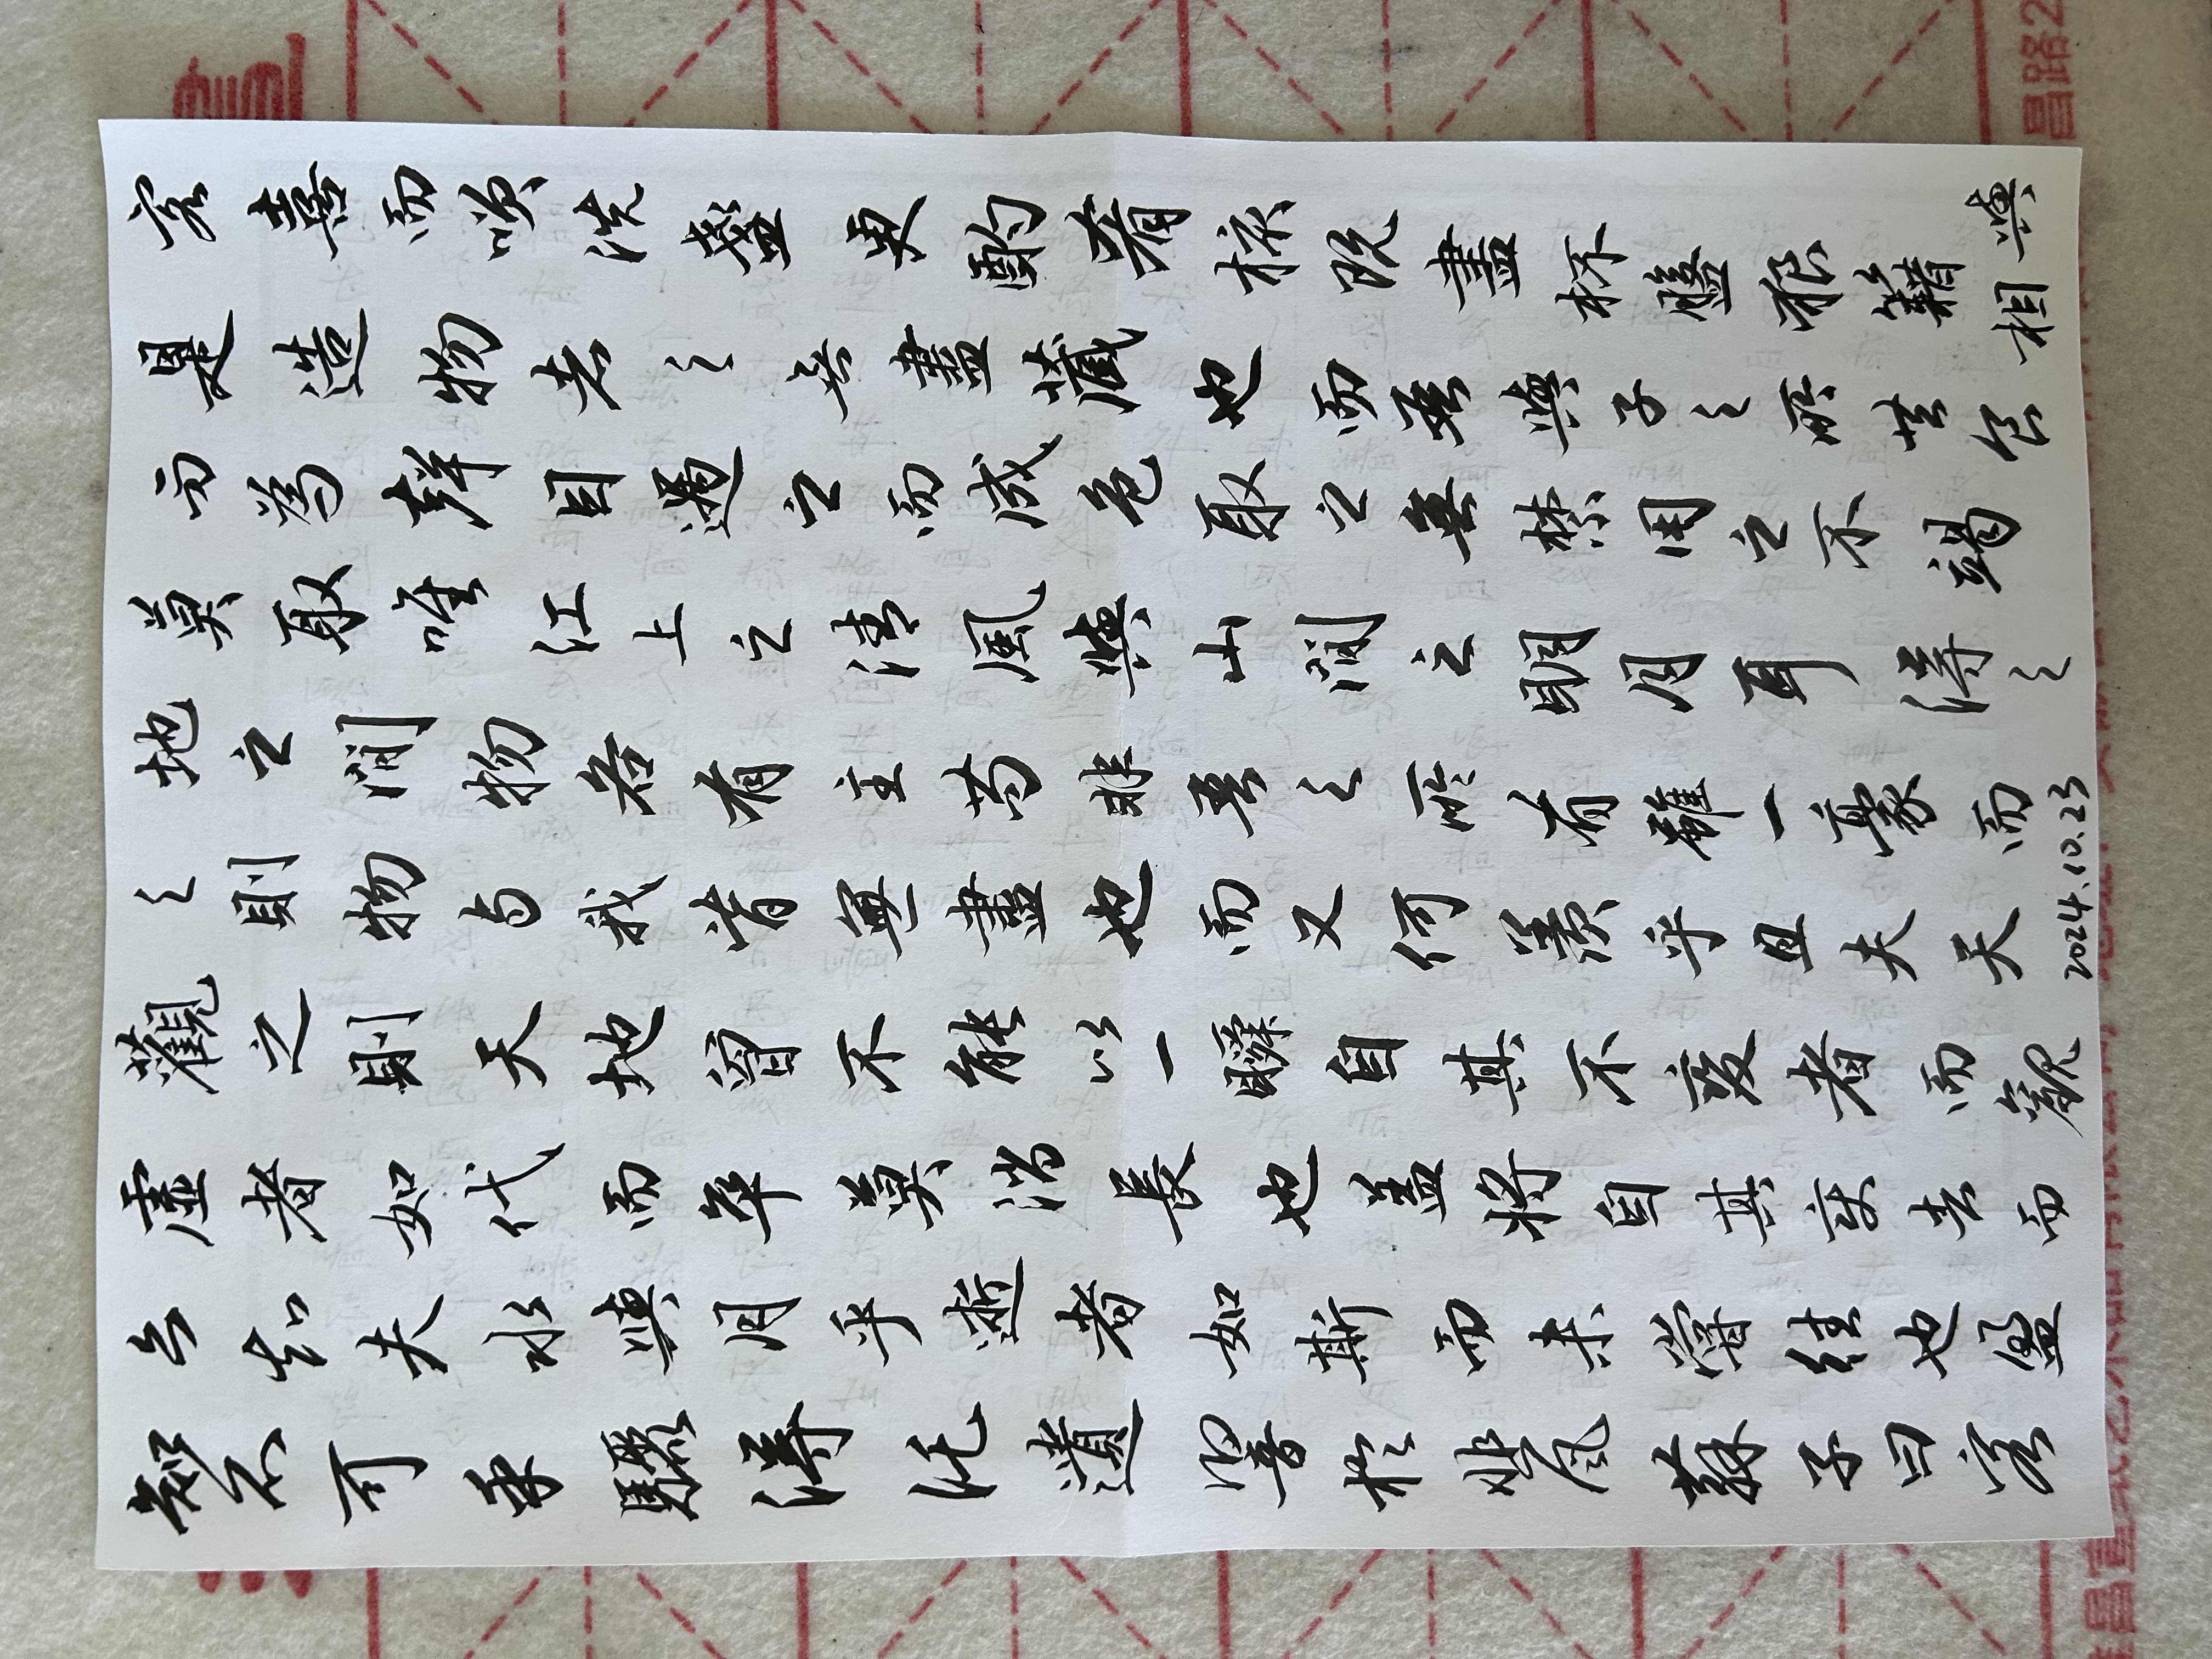 知不可乎驟得託遺響於悲風蘇子曰客
亦知夫水與月乎逝者如斯而未嘗往也盈
虛者如代而卒莫消長也蓋將自其變者而
觀之則天地曾不能以一瞬自其不變者而觀
之則物与我皆無盡也而又何羨乎且夫天
地之間物各有主苟非吾之所有雖一豪而
莫取唯江上之清風與山間之明月耳得之
而為聲目遇之而成色取之無禁用之不竭
是造物者之無盡藏也而吾與子之所共食
客喜而咲洗盞更酌肴核既盡杯盤狼籍相與
2024.10.23
昌路2